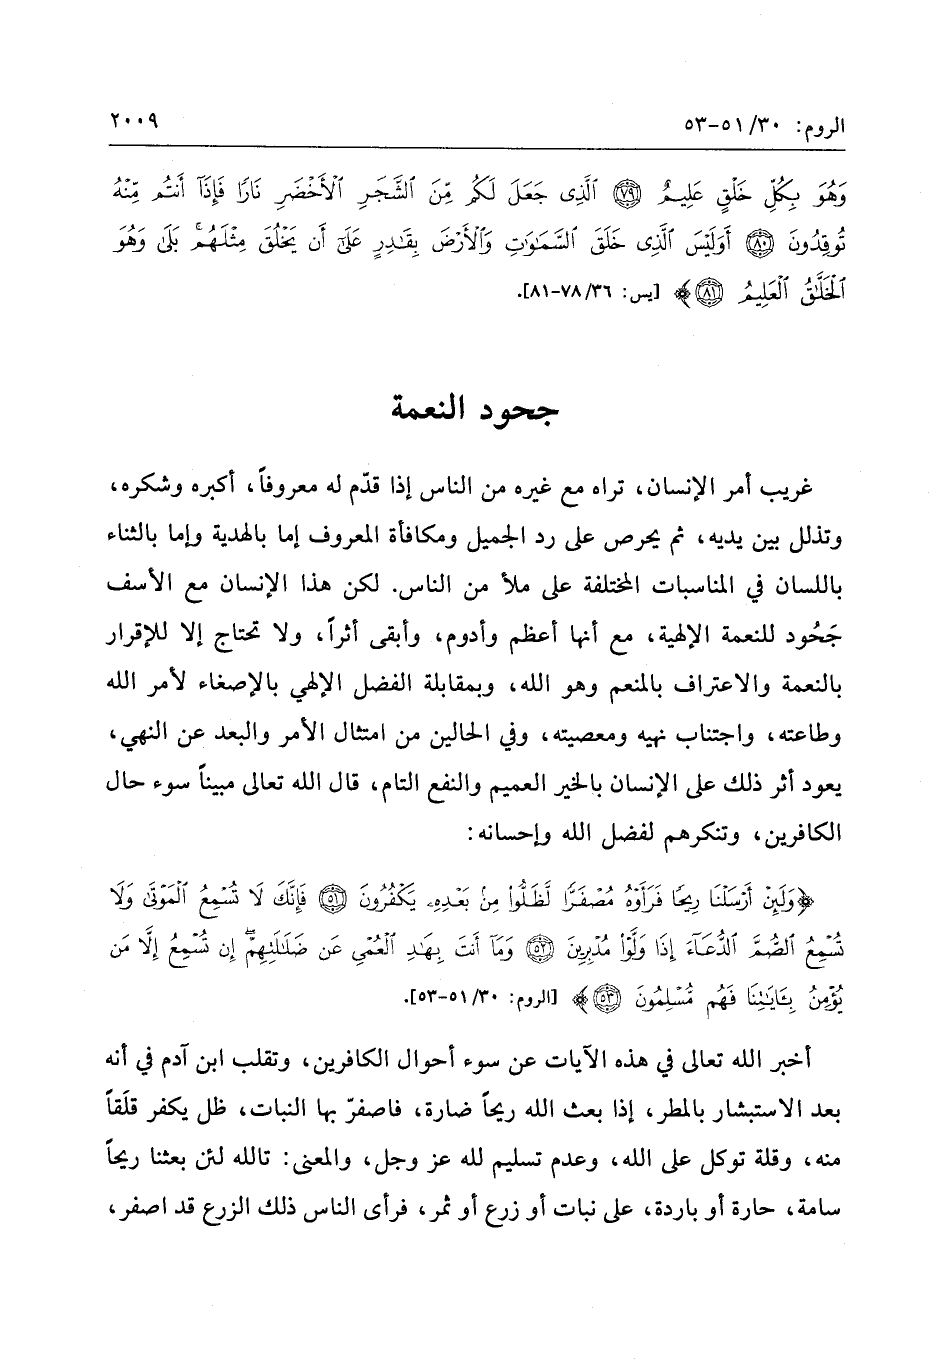 الروم: ٣٠/ ٥١-٥٣ ٢٠٠٩
وَهُوَ بِكُلِّ خَلْقٍ عَلِيمٌ ﴿٧٩﴾ ٱلَّذِى جَعَلَ لَكُم مِّنَ ٱلشَّجَرِ ٱلْأَخْضَرِ نَارًا فَإِذَآ أَنتُم مِّنْهُ
تُوقِدُونَ ﴿٨٠﴾ أَوَلَيْسَ ٱلَّذِى خَلَقَ ٱلسَّمَٰوَٰتِ وَٱلْأَرْضَ بِقَٰدِرٍ عَلَىٰٓ أَن يَخْلُقَ مِثْلَهُم ۚ بَلَىٰ وَهُوَ
ٱلْخَلَّٰقُ ٱلْعَلِيمُ ﴿٨١﴾﴾ [يس: ٣٦/ ٧٨-٨١].
جحود النعمة
غريب أمر الإنسان، تراه مع غيره من الناس إذا قدّم له معروفاً، أكبره وشكره،
وتذلل بين يديه، ثم يحرص على رد الجميل ومكافأة المعروف إما بالهدية وإما بالثناء
باللسان في المناسبات المختلفة على ملأ من الناس. لكن هذا الإنسان مع الأسف
جَحُود للنعمة الإلهية، مع أنها أعظم وأدوم، وأبقى أثراً، ولا تحتاج إلا للإقرار
بالنعمة والاعتراف بالمنعم وهو الله، وبمقابلة الفضل الإلهي بالإصغاء لأمر الله
وطاعته، واجتناب نهيه ومعصيته، وفي الحالين من امتثال الأمر والبعد عن النهي،
يعود أثر ذلك على الإنسان بالخير العميم والنفع التام، قال الله تعالى مبيناً سوء حال
الكافرين، وتنكرهم لفضل الله وإحسانه:
﴿وَلَئِنْ أَرْسَلْنَا رِيحًا فَرَأَوْهُ مُصْفَرًّا لَّظَلُّوا۟ مِنۢ بَعْدِهِۦ يَكْفُرُونَ ﴿٥١﴾ فَإِنَّكَ لَا تُسْمِعُ ٱلْمَوْتَىٰ وَلَا
تُسْمِعُ ٱلصُّمَّ ٱلدُّعَآءَ إِذَا وَلَّوْا۟ مُدْبِرِينَ ﴿٥٢﴾ وَمَآ أَنتَ بِهَٰدِ ٱلْعُمْىِ عَن ضَلَٰلَتِهِمْ ۖ إِن تُسْمِعُ إِلَّا مَن
يُؤْمِنُ بِـَٔايَٰتِنَا فَهُم مُّسْلِمُونَ ﴿٥٣﴾﴾ [الروم: ٣٠/ ٥١-٥٣].
أخبر الله تعالى في هذه الآيات عن سوء أحوال الكافرين، وتقلب ابن آدم في أنه
بعد الاستبشار بالمطر، إذا بعث الله ريحاً ضارة، فاصفرّ بها النبات، ظل يكفر قلَقاً
منه، وقلة توكل على الله، وعدم تسليم لله عز وجل، والمعنى: تالله لئن بعثنا ريحاً
سامة، حارة أو باردة، على نبات أو زرع أو ثمر، فرأى الناس ذلك الزرع قد اصفر،